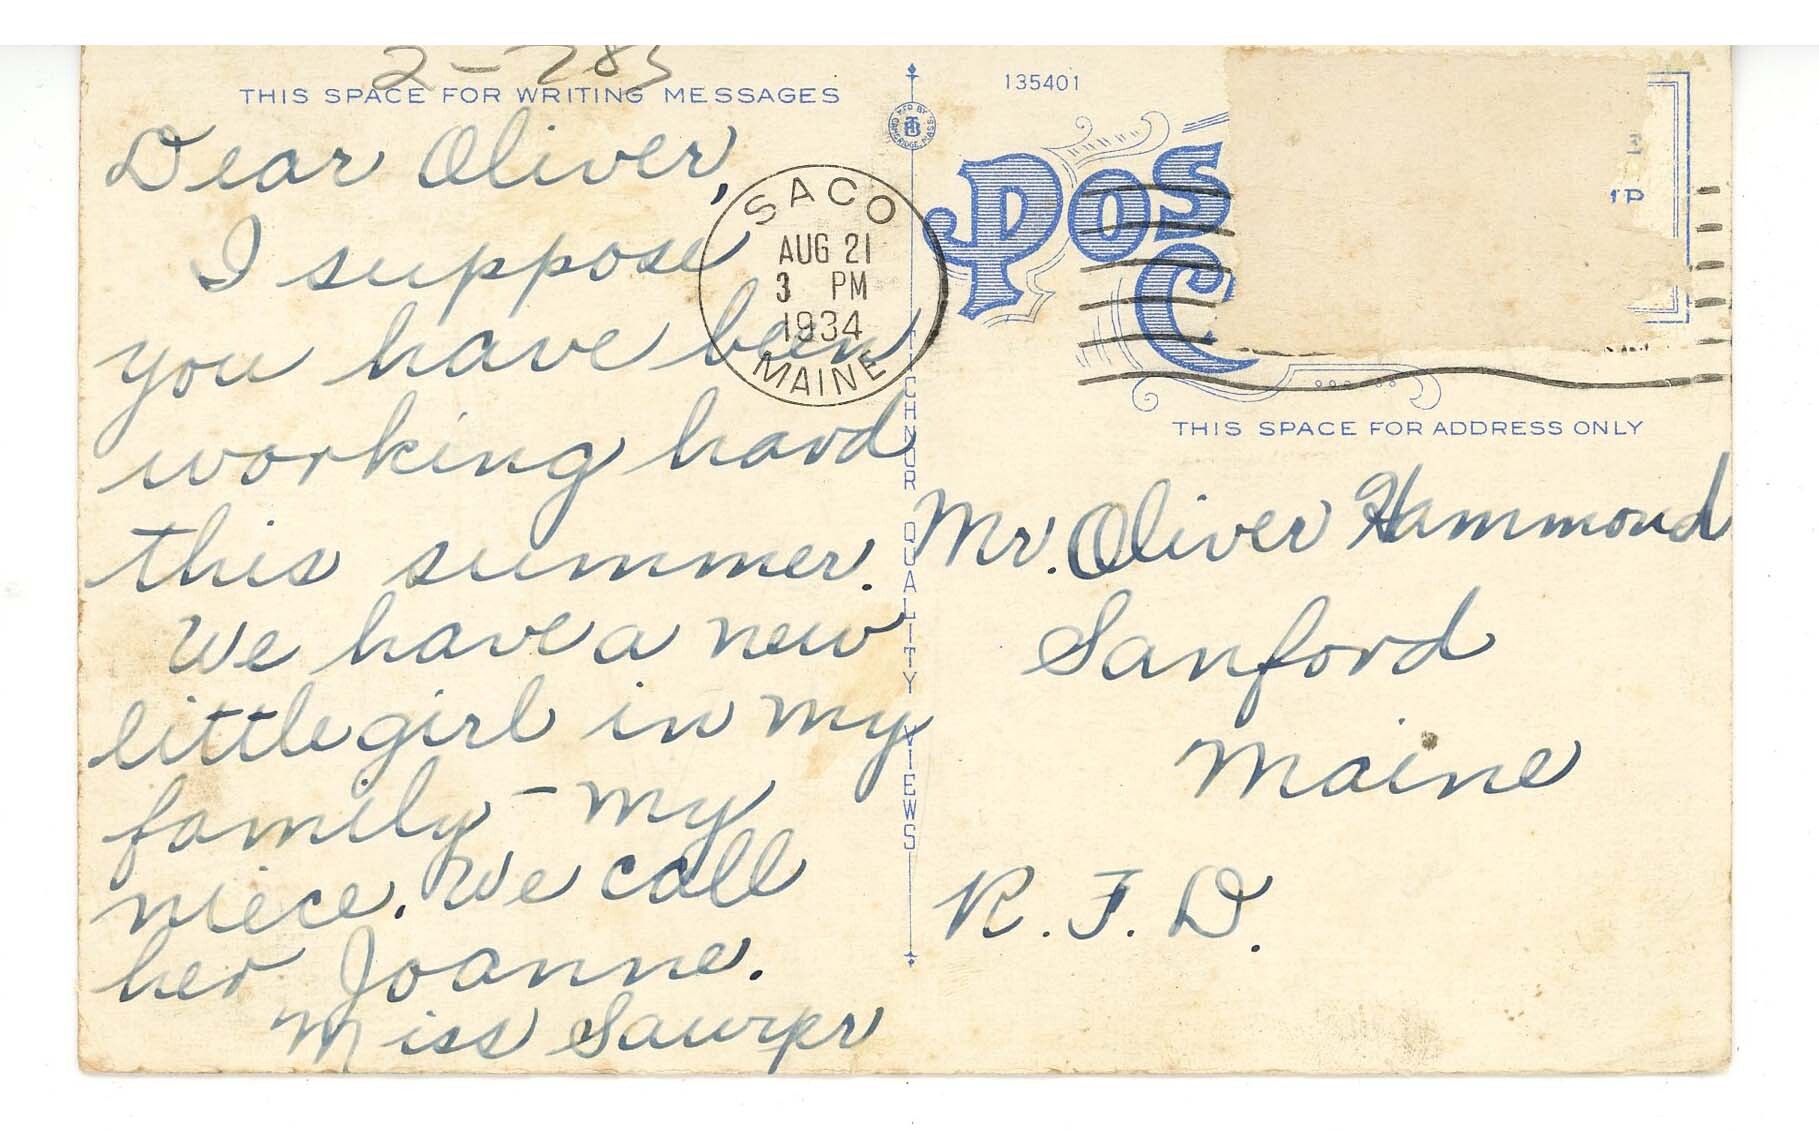 2-285
THIS SPACE FOR WRITING MESSAGES
Dear Oliver,
I suppose
you have been
working hard
this summer.
We have a new
little girl in my
family - my
niece. We call
her Joanne.
Miss Sawyer
SACO
AUG 21
3 PM
1934
MAINE
MF'D BY
CAMBRIDGE, MASS.
TICHNOR QUALITY VIEWS
135401
POS
C
THIS SPACE FOR ADDRESS ONLY
Mr. Oliver Hammond
Sanford
Maine
R. F. D.